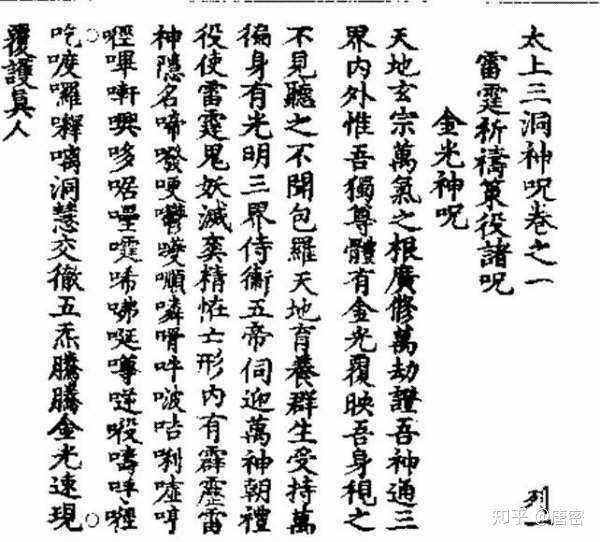 太上三洞神呪卷之一
雷霆祈禱策役諸呪
金光神呪
天地玄宗萬氣之根廣修萬劫證吾神通三
界內外惟吾獨尊體有金光覆映吾身視之
不見聽之不聞包羅天地育養群生受持萬
徧身有光明三界侍衛五帝伺迎萬神朝禮
役使雷霆鬼妖滅䘮精恠亡形內有霹靂雷
神隱名啼㗶哽嚶順嘶呼啵咕唎噓哼
嗶㗨嚬哆啹嚏唏咈唌噂㗀嚋呼
吃㗑囉釋嚩洞慧交徹五炁騰騰金光速現
覆護真人
列一
知乎 @唐密